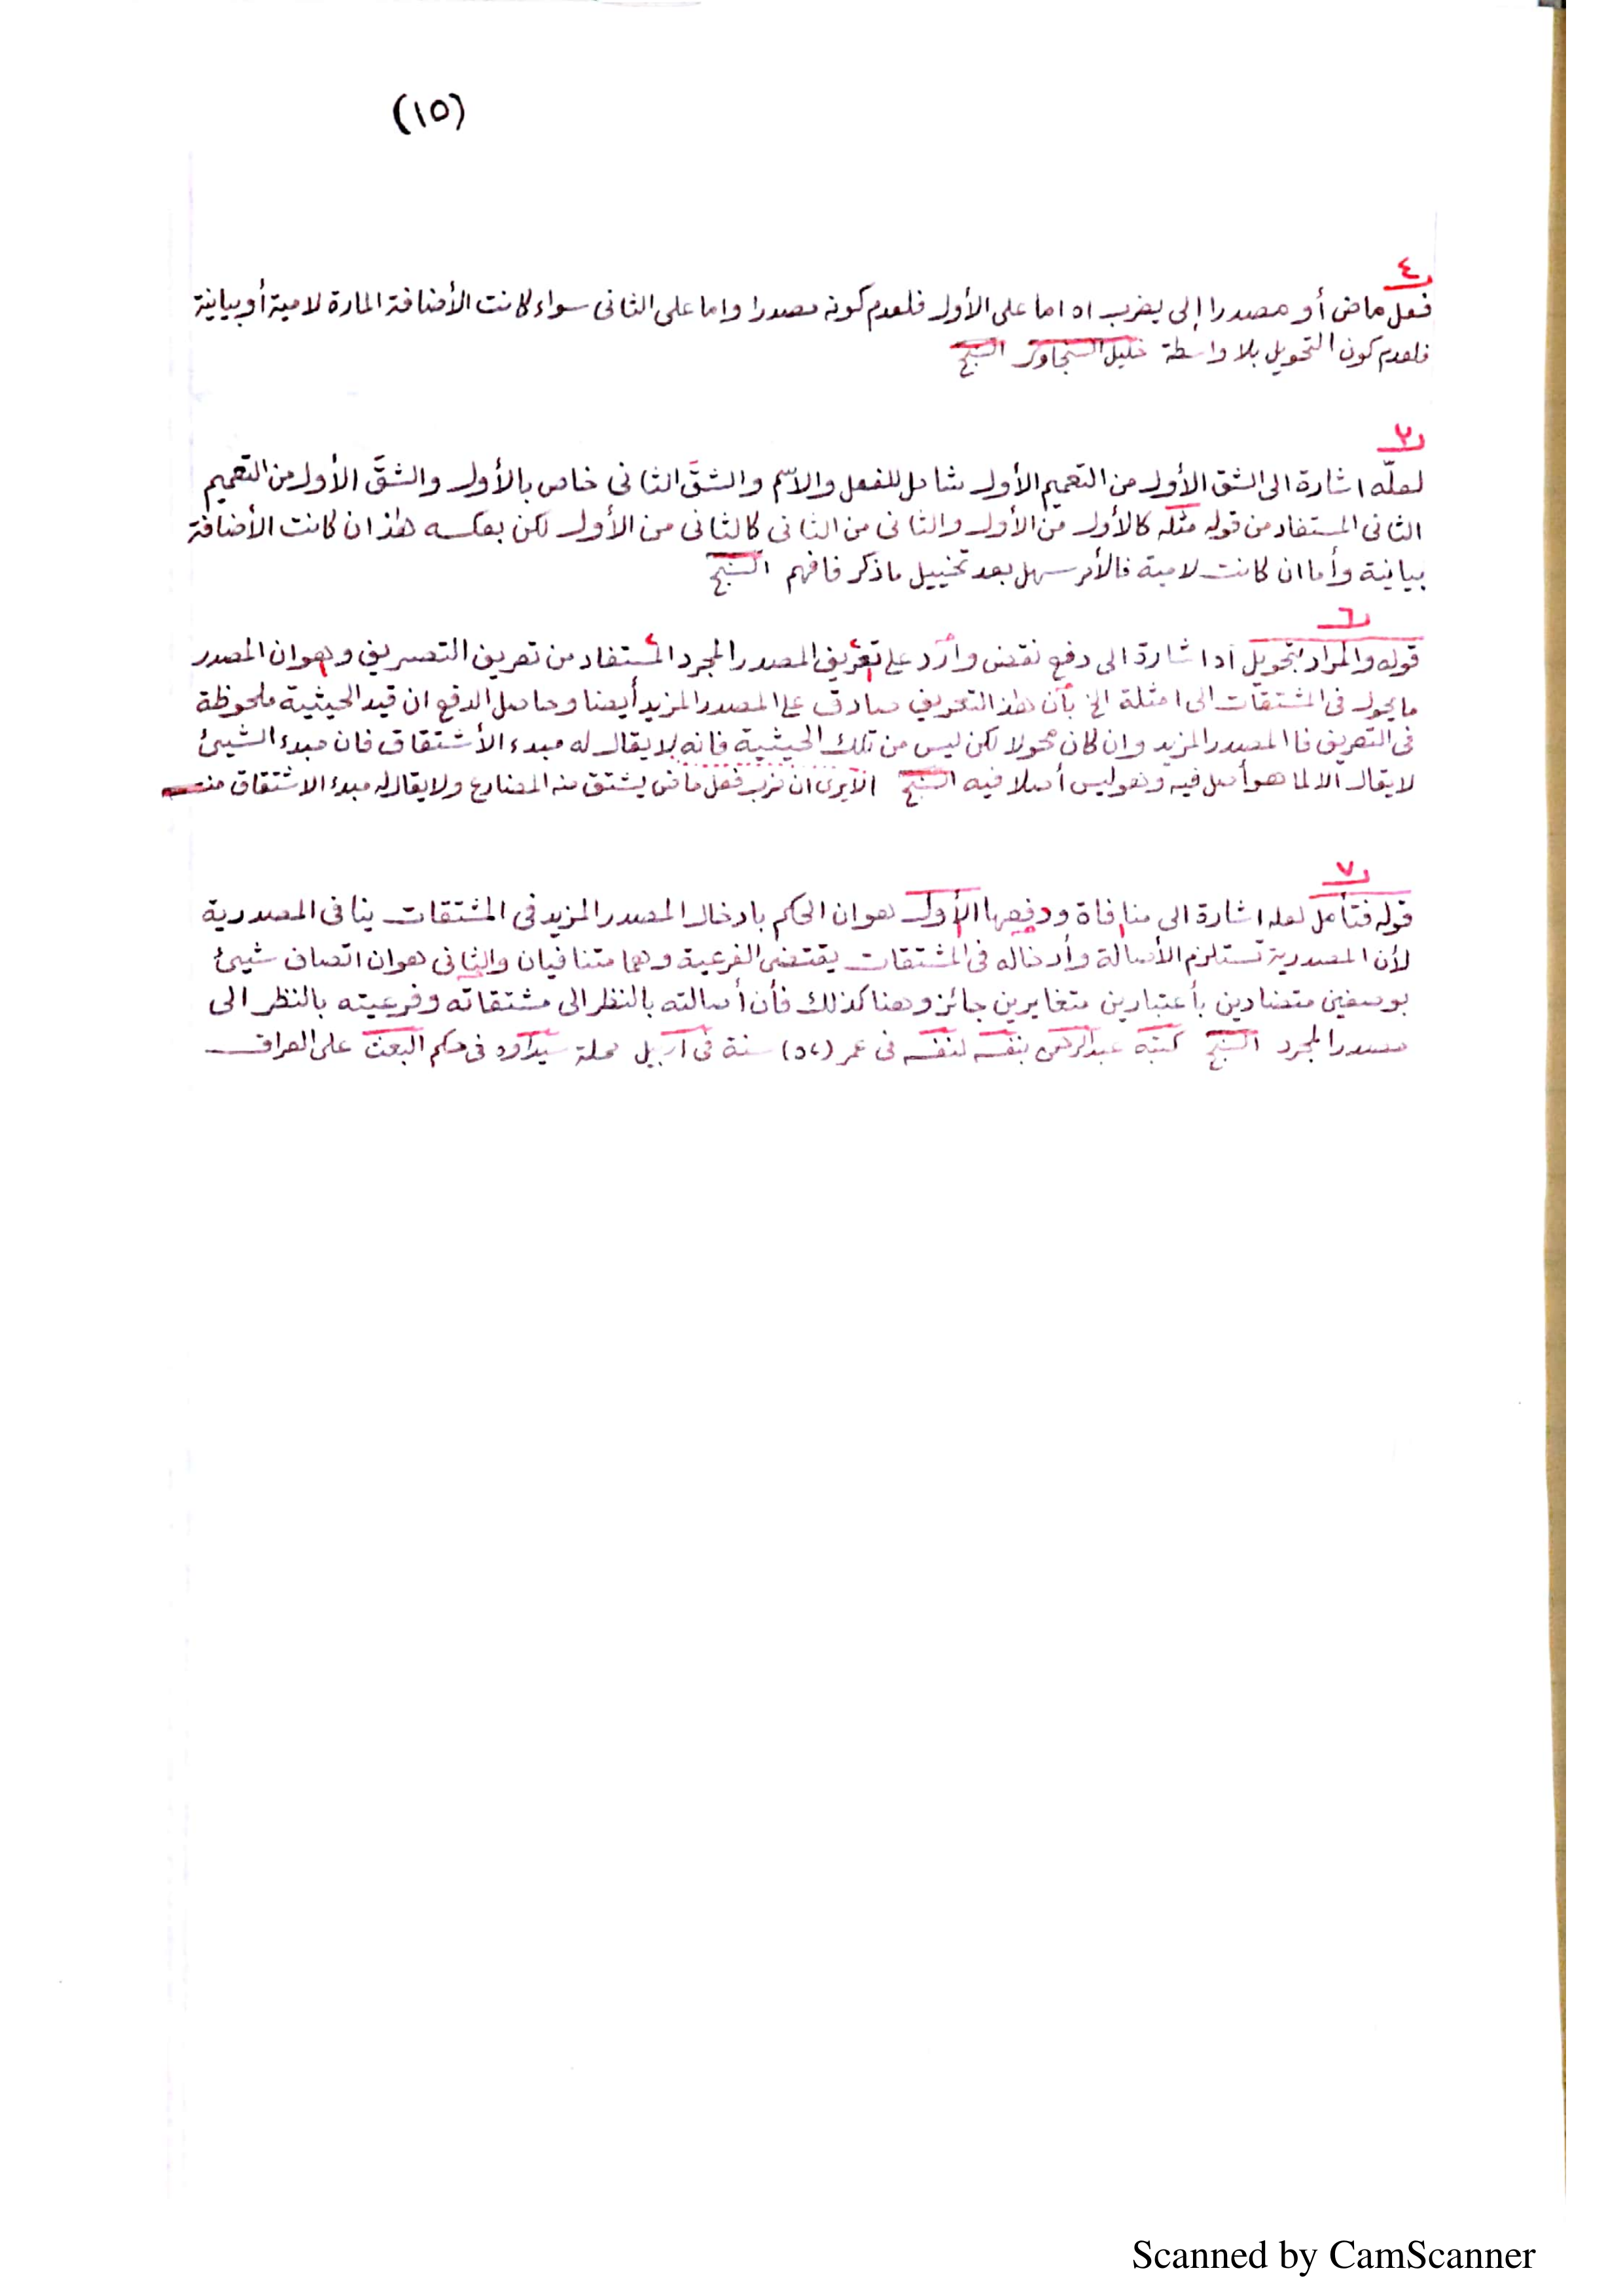 (١٥)
٤
فعل ماض أو مصدرا إلى يضرب اه اما على الأول فلعدم كونه مصدرا واما على الثانى سواء كانت الأضافة المارة لامية أو بيانية
فلعدم كون التحويل بلا واسطة خليل
٢
لعلّه اشارة الى الشق الأول من التعميم الأول شامل للفعل والاسم والشقّ الثانى خاص بالأول والشقّ الأول من التعميم
الثانى المستفاد من قوله مثله كالأول من الأول والثانى من الثانى كالثانى من الأول لكن بعكسه هذا ان كانت الأضافة
بيانية وأما ان كانت لامية فالأمر سهل بعد تخييل ماذكر فافهم
٦
قوله والمراد بتحويل اه اشارة الى دفع نقض وارد على تعريف المصدر المجرد المستفاد من تعريف التصريف وهو ان المصدر
ما يحول فى المشتقات الى امثلة الخ بأن هذ التعريف صادق على المصدر المزيد أيضا وحاصل الدفع ان قيد الحيثية ملحوظة
فى التعريف فا المصدر المزيد وان كان محولا لكن ليس من تلك الحيثية فانه لا يقال له مبدء الأشتقاق فان مبدء الشيئ
لا يقال الا لما هو أصل فيه وهو ليس أصلا فيه الايرى ان ضرب فعل ماض يشتق منه المضارع ولا يقال له مبدء الاشتقاق منه
٧
قوله فتأمل لعله اشارة الى منافاة ودفعها الأول هو ان الحكم بادخال المصدر المزيد فى المشتقات ينافى المصدرية
لأن المصدرية تستلزم الأصالة وأدخاله فى المشتقات يقتضى الفرعية وهما متنافيان والثانى هو ان اتصاف شيئ
بوصفين متضادين بأعتبارين متغايرين جائز وهنا كذلك فأن أصالته بالنظر الى مشتقاته وفرعيته بالنظر الى
مصدر المجرد كتبه عبدالرحمن بنفسه لنفسه فى عمر سنة فى أربيل محلة سيداوه فى حكم البعث على العراق
Scanned by CamScanner